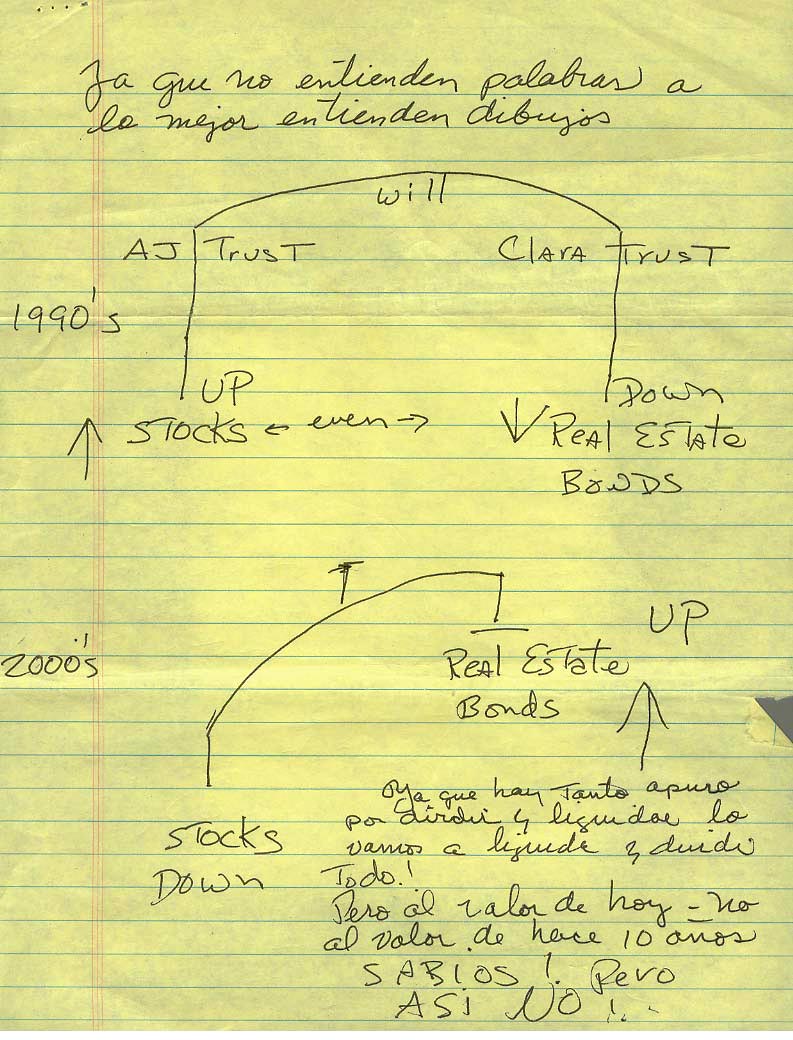 Ya que no entienden palabras a
lo mejor entienden dibujos
will
AJ TrusT
Clara Trust
1990's
UP
Down
STOCKS ← even →
Real Estate
BONDS
UP
2000's
Real Estate
Bonds
Ya que hay Tanto apuro
por y liquidar lo
vamos a y
Todo!
Pero al valor de hoy - no
al valor de hace 10 años
STOCKS
Down
SABIOS! Pero
ASI NO!..